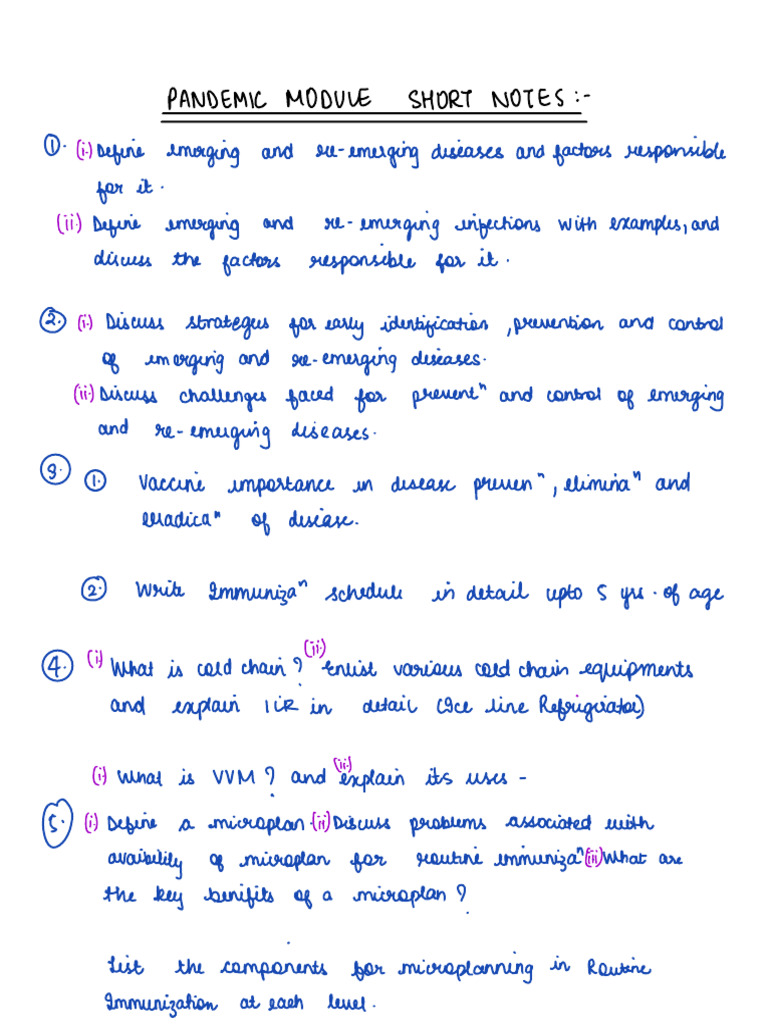 PANDEMIC MODULE SHORT NOTES :-
①. (i.) Define emerging and re-emerging diseases and factors responsible
for it.
(ii) Define emerging and re-emerging infections with examples, and
discuss the factors responsible for it.
②. (i.) Discuss strategies for early identification, prevention and control
of emerging and re-emerging diseases.
(ii.) Discuss challenges faced for preventⁿ and control of emerging
and re-emerging diseases.
③. ①. Vaccine importance in disease prevenⁿ, eliminaⁿ and
eradicaⁿ of disease.
②. Write Immunizaⁿ schedule in detail upto 5 yrs. of age
④. (i) What is cold chain? (ii) Enlist various cold chain equipments
and explain ILR in detail (Ice line Refrigirator)
(i) What is VVM? and (ii) explain its uses -
⑤. (i) Define a microplan. (ii) Discuss problems associated with
avaibility of microplan for routine immunizaⁿ (iii) What are
the key benifits of a microplan?
List the components for microplanning in Routine
Immunization at each level.